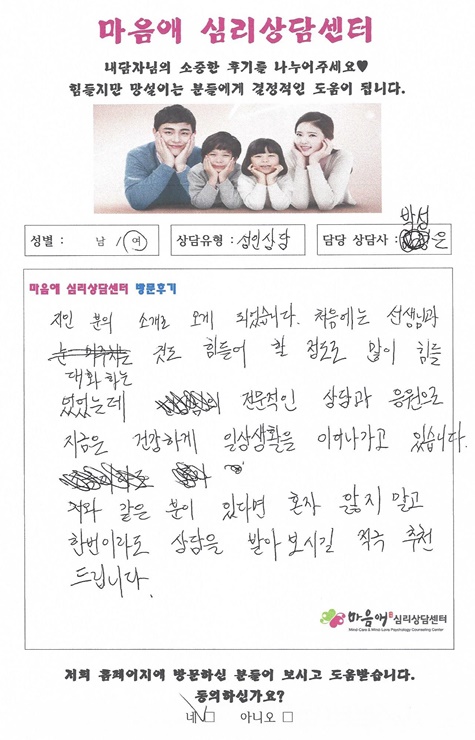 마음애 심리상담센터
내담자님의 소중한 후기를 나누어주세요♥
힘들지만 망설이는 분들에게 결정적인 도움이 됩니다.
성별 : 남 / 여
상담유형 : 성인상담
담당 상담사 : 박성은
마음애 심리상담센터 방문후기
지인 분의 소개로 오게 되었습니다. 처음에는 선생님과
눈 마주치는 것도 힘들어 할 정도로 많이 힘들
대화하는
었었는데 전문적인 상담과 응원으로
지금은 건강하게 일상생활을 이어나가고 있습니다.
저와 같은 분이 있다면 혼자 앓지 말고
한번이라도 상담을 받아보시길 적극 추천
드립니다.
마음애 심리상담센터
Mind-Care & Mind-Love Psychology Counseling Center
저희 홈페이지에 방문하신 분들이 보시고 도움받습니다.
동의하신가요?
네 □ 아니오 □